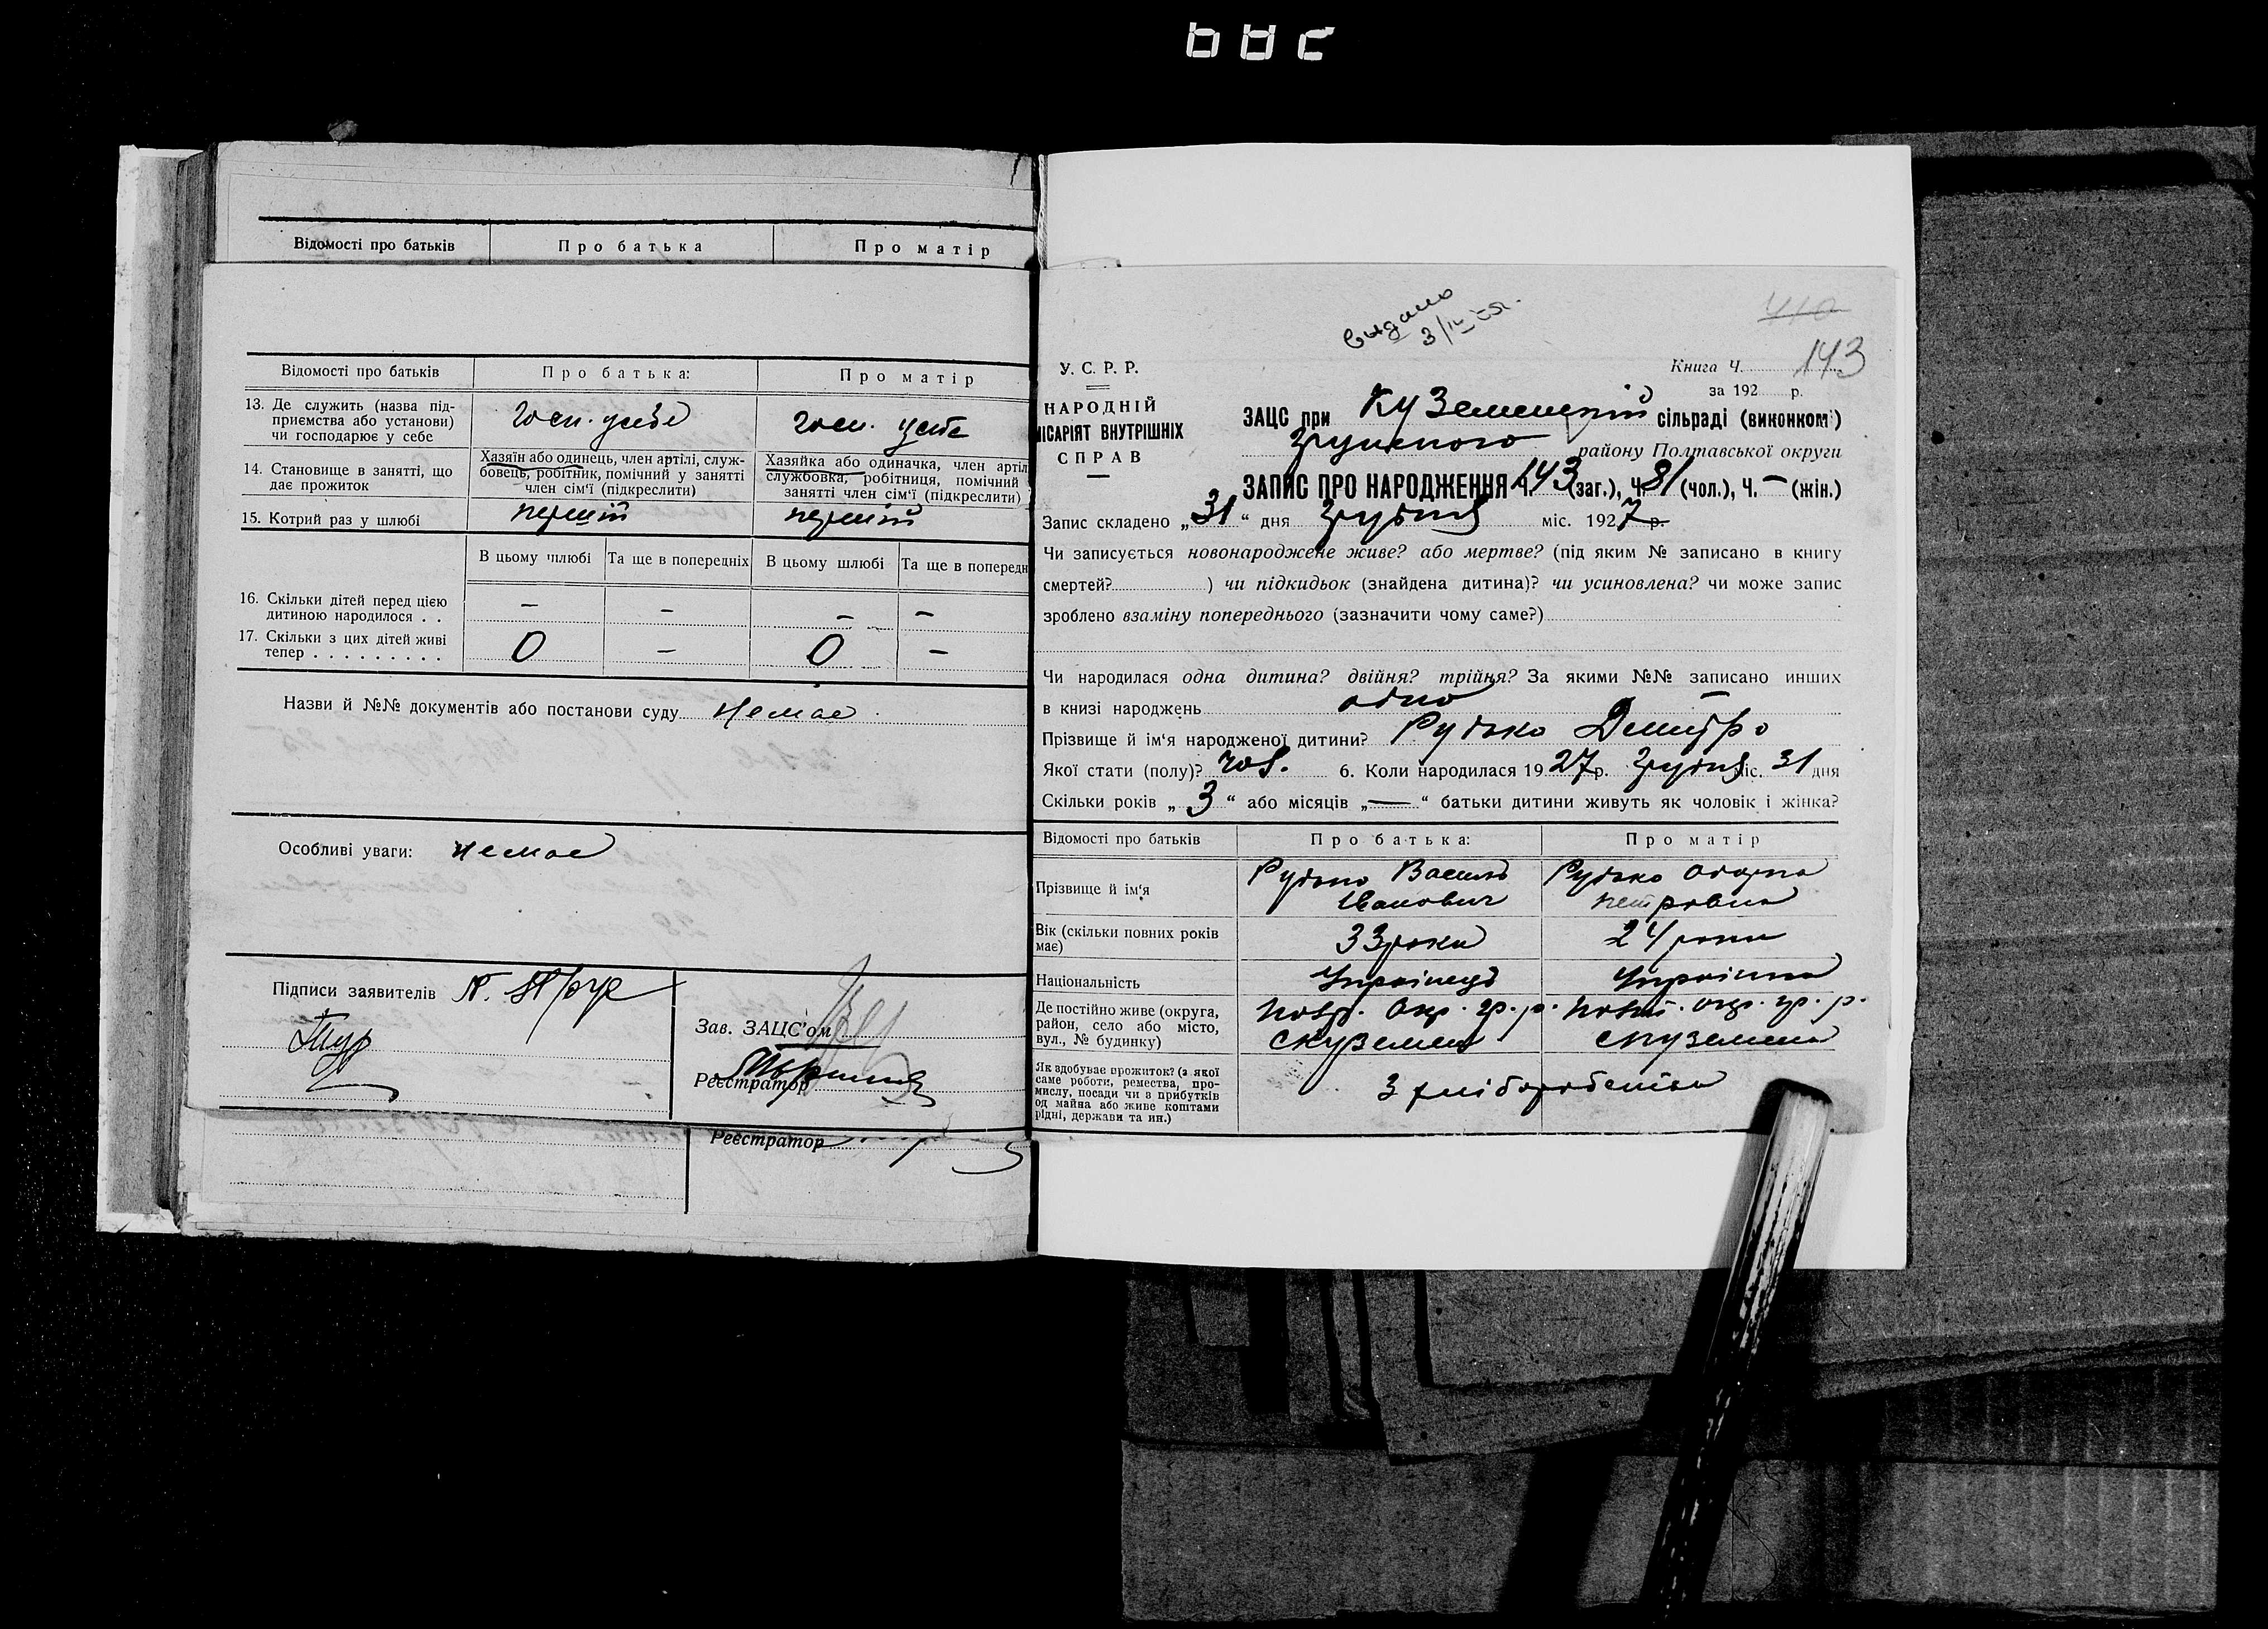 Відомості про батьків Про батька Про матір
Відомості про батьків Про батька: Про матір
13. Де служить (назва під-
приємства або установи)
чи господарює у себе
госп. у себе госп. у себе
14. Становище в занятті, що
дає прожиток
Хазяїн або одинець, член артілі, служ-
бовець, робітник, помічний у занятті
член сім'ї (підкреслити)
Хазяйка або одиначка, член артіл
службовка, робітниця, помічний
занятті член сім'ї (підкреслити)
15. Котрий раз у шлюбі перший перший
В цьому шлюбі Та ще в попередніх В цьому шлюбі Та ще в попередн
16. Скільки дітей перед цією
дитиною народилося . . – – – –
17. Скільки з цих дітей живі
тепер . . . . . . . . . 0 – 0 –
Назви й №№ документів або постанови суду немає
Особливі уваги: немає
Підписи заявителів
Зав. ЗАЦС'ом
Реєстратор
Реєстратор
выдано
410
У. С. Р. Р.
Книга Ч. 143
за 192 р.
НАРОДНІЙ
ІСАРІЯТ ВНУТРІШНІХ
СПРАВ
ЗАЦС при Куземенській сільраді (виконком)
Грунського району Полтавської округи
ЗАПИС ПРО НАРОДЖЕННЯ Ч. 143 (заг.), Ч. 81 (чол.), Ч. – (жін.)
Запис складено „31“ дня Грудня міс. 1927 р.
Чи записується новонароджене живе? або мертве? (під яким № записано в книгу
смертей? ) чи підкидьок (знайдена дитина)? чи усиновлена? чи може запис
зроблено взаміну попереднього (зазначити чому саме?)
Чи народилася одна дитина? двійня? трійня? За якими №№ записано инших
в книзі народжень одно –
Прізвище й ім'я народженої дитини? Рудько Дмитро
Якої стати (полу)? чол. 6. Коли народилася 1927 р. Грудня міс. 31 дня
Скільки років „3“ або місяців „—“ батьки дитини живуть як чоловік і жінка?
Відомості про батьків Про батька: Про матір
Прізвище й ім'я
Рудько Василь
Іванович
Рудько Одарка
Петровна
Вік (скільки повних років
має)
33 роки 24 роки
Національність Українець Українка
Де постійно живе (округа,
район, село або місто,
вул., № будинку)
Полт. Окр. Гр. р.
с Куземен
Полт. Окр. Гр. р.
с Куземен
Як здобуває прожиток? (з якої
саме роботи, ремества, про-
мислу, посади чи з прибутків
од майна або живе коштами
рідні, держави та ин.)
З хліборобства